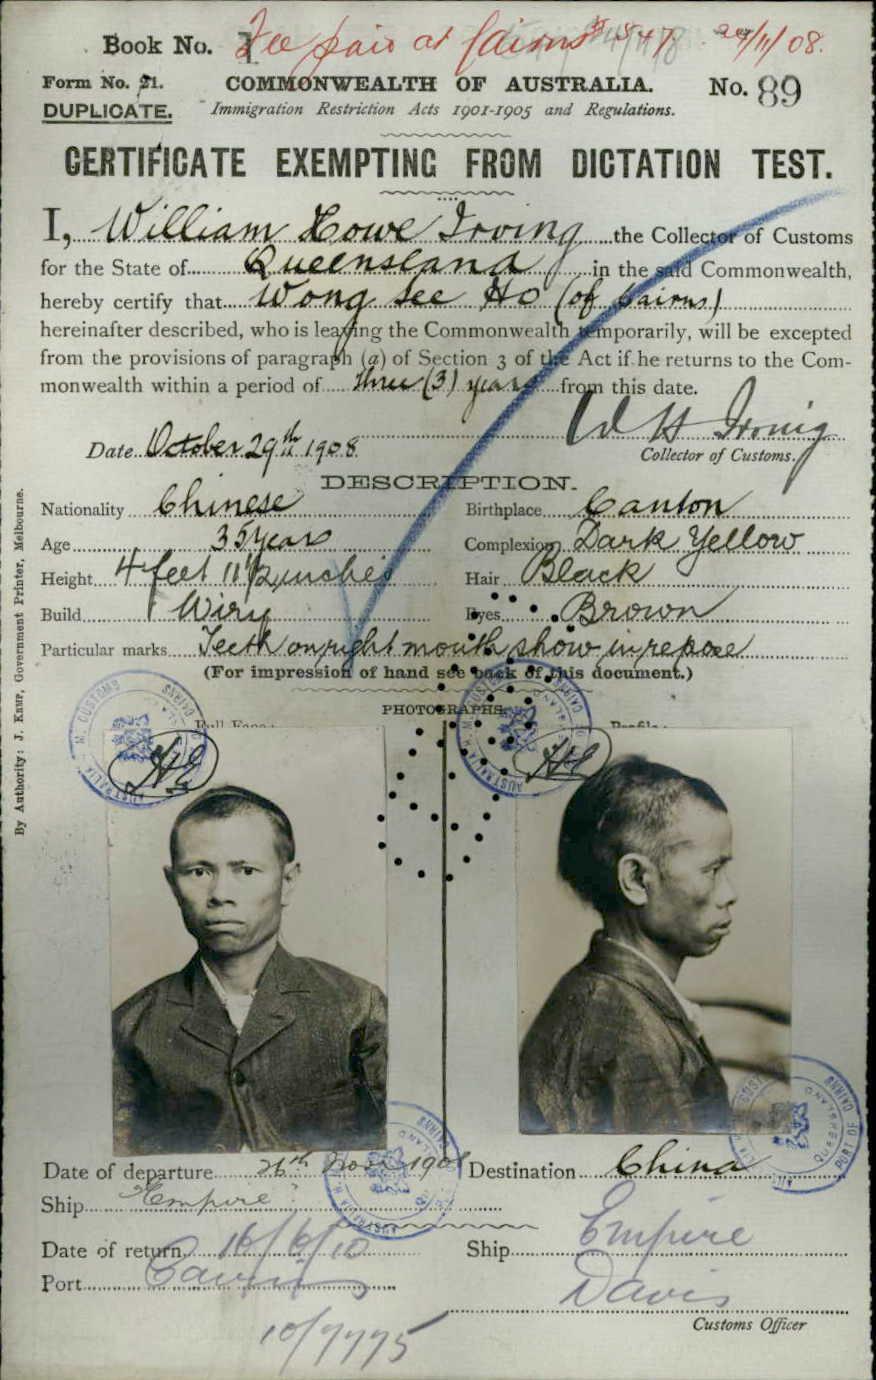 Book No. 1 Fee paid at Cairns 24/11/08.
Form No. 21. COMMONWEALTH OF AUSTRALIA. No. 89
DUPLICATE. Immigration Restriction Acts 1901-1905 and Regulations.
CERTIFICATE EXEMPTING FROM DICTATION TEST.
I, William Howe Irving the Collector of Customs
for the State of Queensland in the said Commonwealth,
hereby certify that Wong See Ho (of Cairns)
hereinafter described, who is leaving the Commonwealth temporarily, will be excepted
from the provisions of paragraph (a) of Section 3 of the Act if he returns to the Com-
monwealth within a period of three (3) years from this date.
W H Irving
Date October 29th 1908 Collector of Customs.
DESCRIPTION.
Nationality Chinese Birthplace Canton
Age 35 years Complexion Dark Yellow
Height 4 feet 11 1/2 inches Hair Black
Build Wiry Eyes Brown
Particular marks Teeth on right mouth show in repose
(For impression of hand see back of this document.)
PHOTOGRAPHS.
Full Face: Profile:
By Authority: J. Kemp, Government Printer, Melbourne.
Date of departure 26th Nov 1908 Destination China
Ship "Empire"
Date of return 16/6/10 Ship Empire
Port Cairns Davis
Customs Officer
10/7775